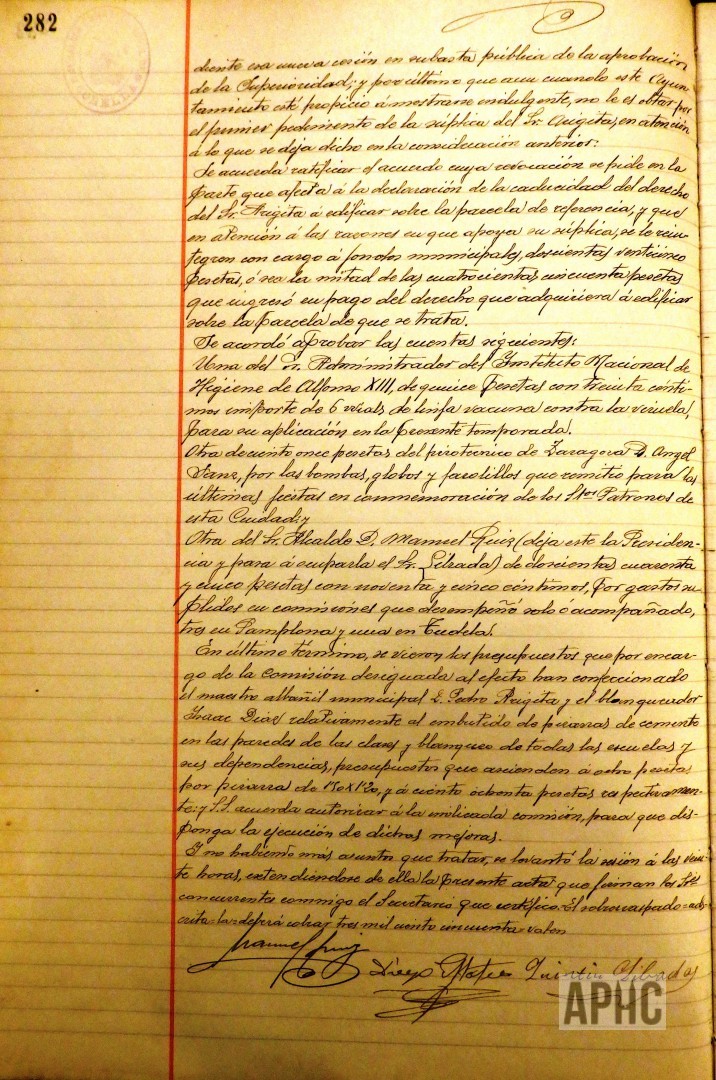 282
diente esa nueva cesión en subasta pública de la aprobación
de la Superioridad; y por último que aun cuando este Ayun-
tamiento esté propicio á mostrarse indulgente, no le es obtar por
el primer pedimento de la súplica del Sr. Arigita, en atención
á lo que se deja dicho en la consideración anterior:
Se acuerda ratificar el acuerdo cuya revocación se pide en la
parte que afecta á la declaración de la caducidad del derecho
del Sr. Arigita á edificar sobre la parcela de referencia, y que
en atención á las razones en que apoya su súplica, se le rein-
tegren con cargo á fondos municipales, doscientas venticinco
pesetas, ó sea la mitad de las cuatrocientas cincuenta pesetas
que ingresó en pago del derecho que adquiriera á edificar
sobre la parcela de que se trata.
Se acordó aprobar las cuentas siguientes:
Una del Sr. Administrador del Instituto Nacional de
Higiene de Alfonso XIII, de quince pesetas con treinta cénti-
mos importe de 6 vials de linfa vacuna contra la viruela,
para su aplicación en la presente temporada.
Otra de ciento once pesetas del pirotecnico de Zaragoza D. Angel
Sanz, por las bombas, globos y farolillos que remitió para las
últimas fiestas en conmemoración de los Stos Patronos de
esta Ciudad; y
Otra del Sr. Alcalde D. Manuel Ruiz (deja este la Presiden-
cia y pasa á ocuparla el Sr. Librada) de doscientas cuarenta
y cinco pesetas con noventa y cinco céntimos, por gastos su-
plidos en comisiones que desempeñó solo ó acompañado,
tres en Pamplona y una en Tudela.
En último término, se vieron los presupuestos que por encar-
go de la Comisión designada al efecto han confeccionado
el maestro albañil municipal D. Pedro Arigita y el blanqueador
Isaac Diaz relativamente al embutido de pizarras de cemento
en las paredes de las clases y blanqueo de todas las escuelas y
sus dependencias, presupuestos que ascienden á ocho pesetas
por pizarra de 130x120, y á ciento ochenta pesetas respectivamen-
te: y S.S. acuerda autorizar á la indicada comisión, para que dis-
ponga la ejecución de dichas mejoras.
Y no habiendo más asuntos que tratar, se levantó la sesión á las vein-
te horas, extendiéndose de ella la presente acta que firman los Sres
concurrentes conmigo el Secretario que certifico. El sobreraspado=ads-
crita=la=deberá cobrar tres mil ciento cincuenta=valen
Manuel Ruiz
Diego Quintin Librada
APHC